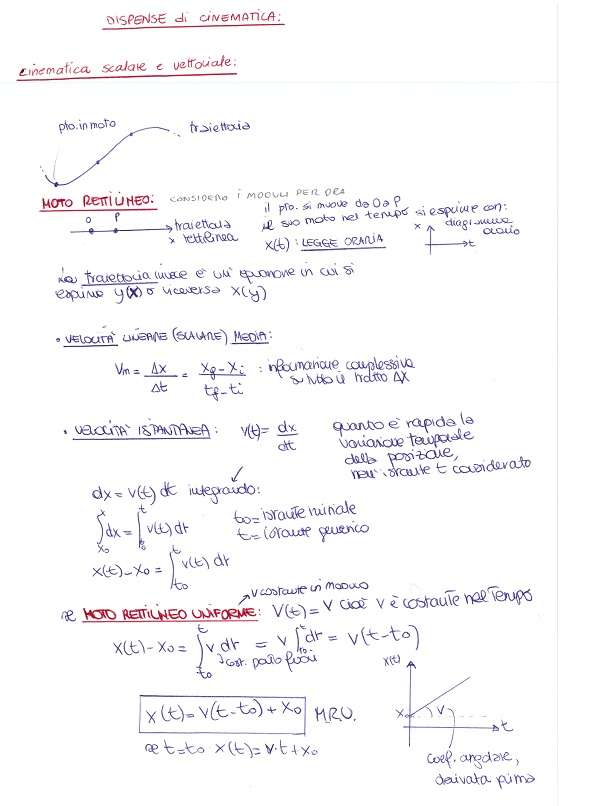 DISPENSE di CINEMATICA:
cinematica scalare e vettoriale:
pto. in moto
traiettoria
MOTO RETTILINEO: CONSIDERO I MODULI PER ORA
O P
traiettoria
x rettilinea
il pto. si muove da O a P
il suo moto nel tempo si esprime con:
x(t) : LEGGE ORARIA
x diagramma
orario
t
La traiettoria invece è un' equazione in cui si
esprime y(x) o viceversa x(y)
• VELOCITA' LINEARE (SCALARE) MEDIA:
Vm = Δx/Δt = (xf - xi)/(tf - ti) : informazione complessiva
su tutto il tratto Δx
• VELOCITA' ISTANTANEA: v(t) = dx/dt
quando è rapida la
variazione temporale
della posizione,
nell' istante t considerato
dx = v(t) dt integrando:
∫ₓ₀ˣ dx = ∫ₜ₀ᵗ v(t) dt
t0 = istante iniziale
t = istante generico
x(t) - x0 = ∫ₜ₀ᵗ v(t) dt
v costante in modulo
MOTO RETTILINEO UNIFORME: V(t) = V cioè V è costante nel tempo
x(t) - x0 = ∫ₜ₀ᵗ v dt = v ∫ₜ₀ᵗ dt = v(t - t0)
cost. porto fuori
x(t) = v(t - t0) + x0 M.R.U.
x(t)
x0 v t
x(t) = v·t + x0
coef. angolare,
derivata prima